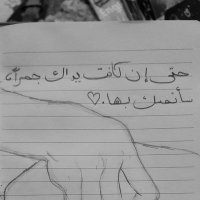 حتى إن كانت يداك جمراً،
سأتمسك بها.♡